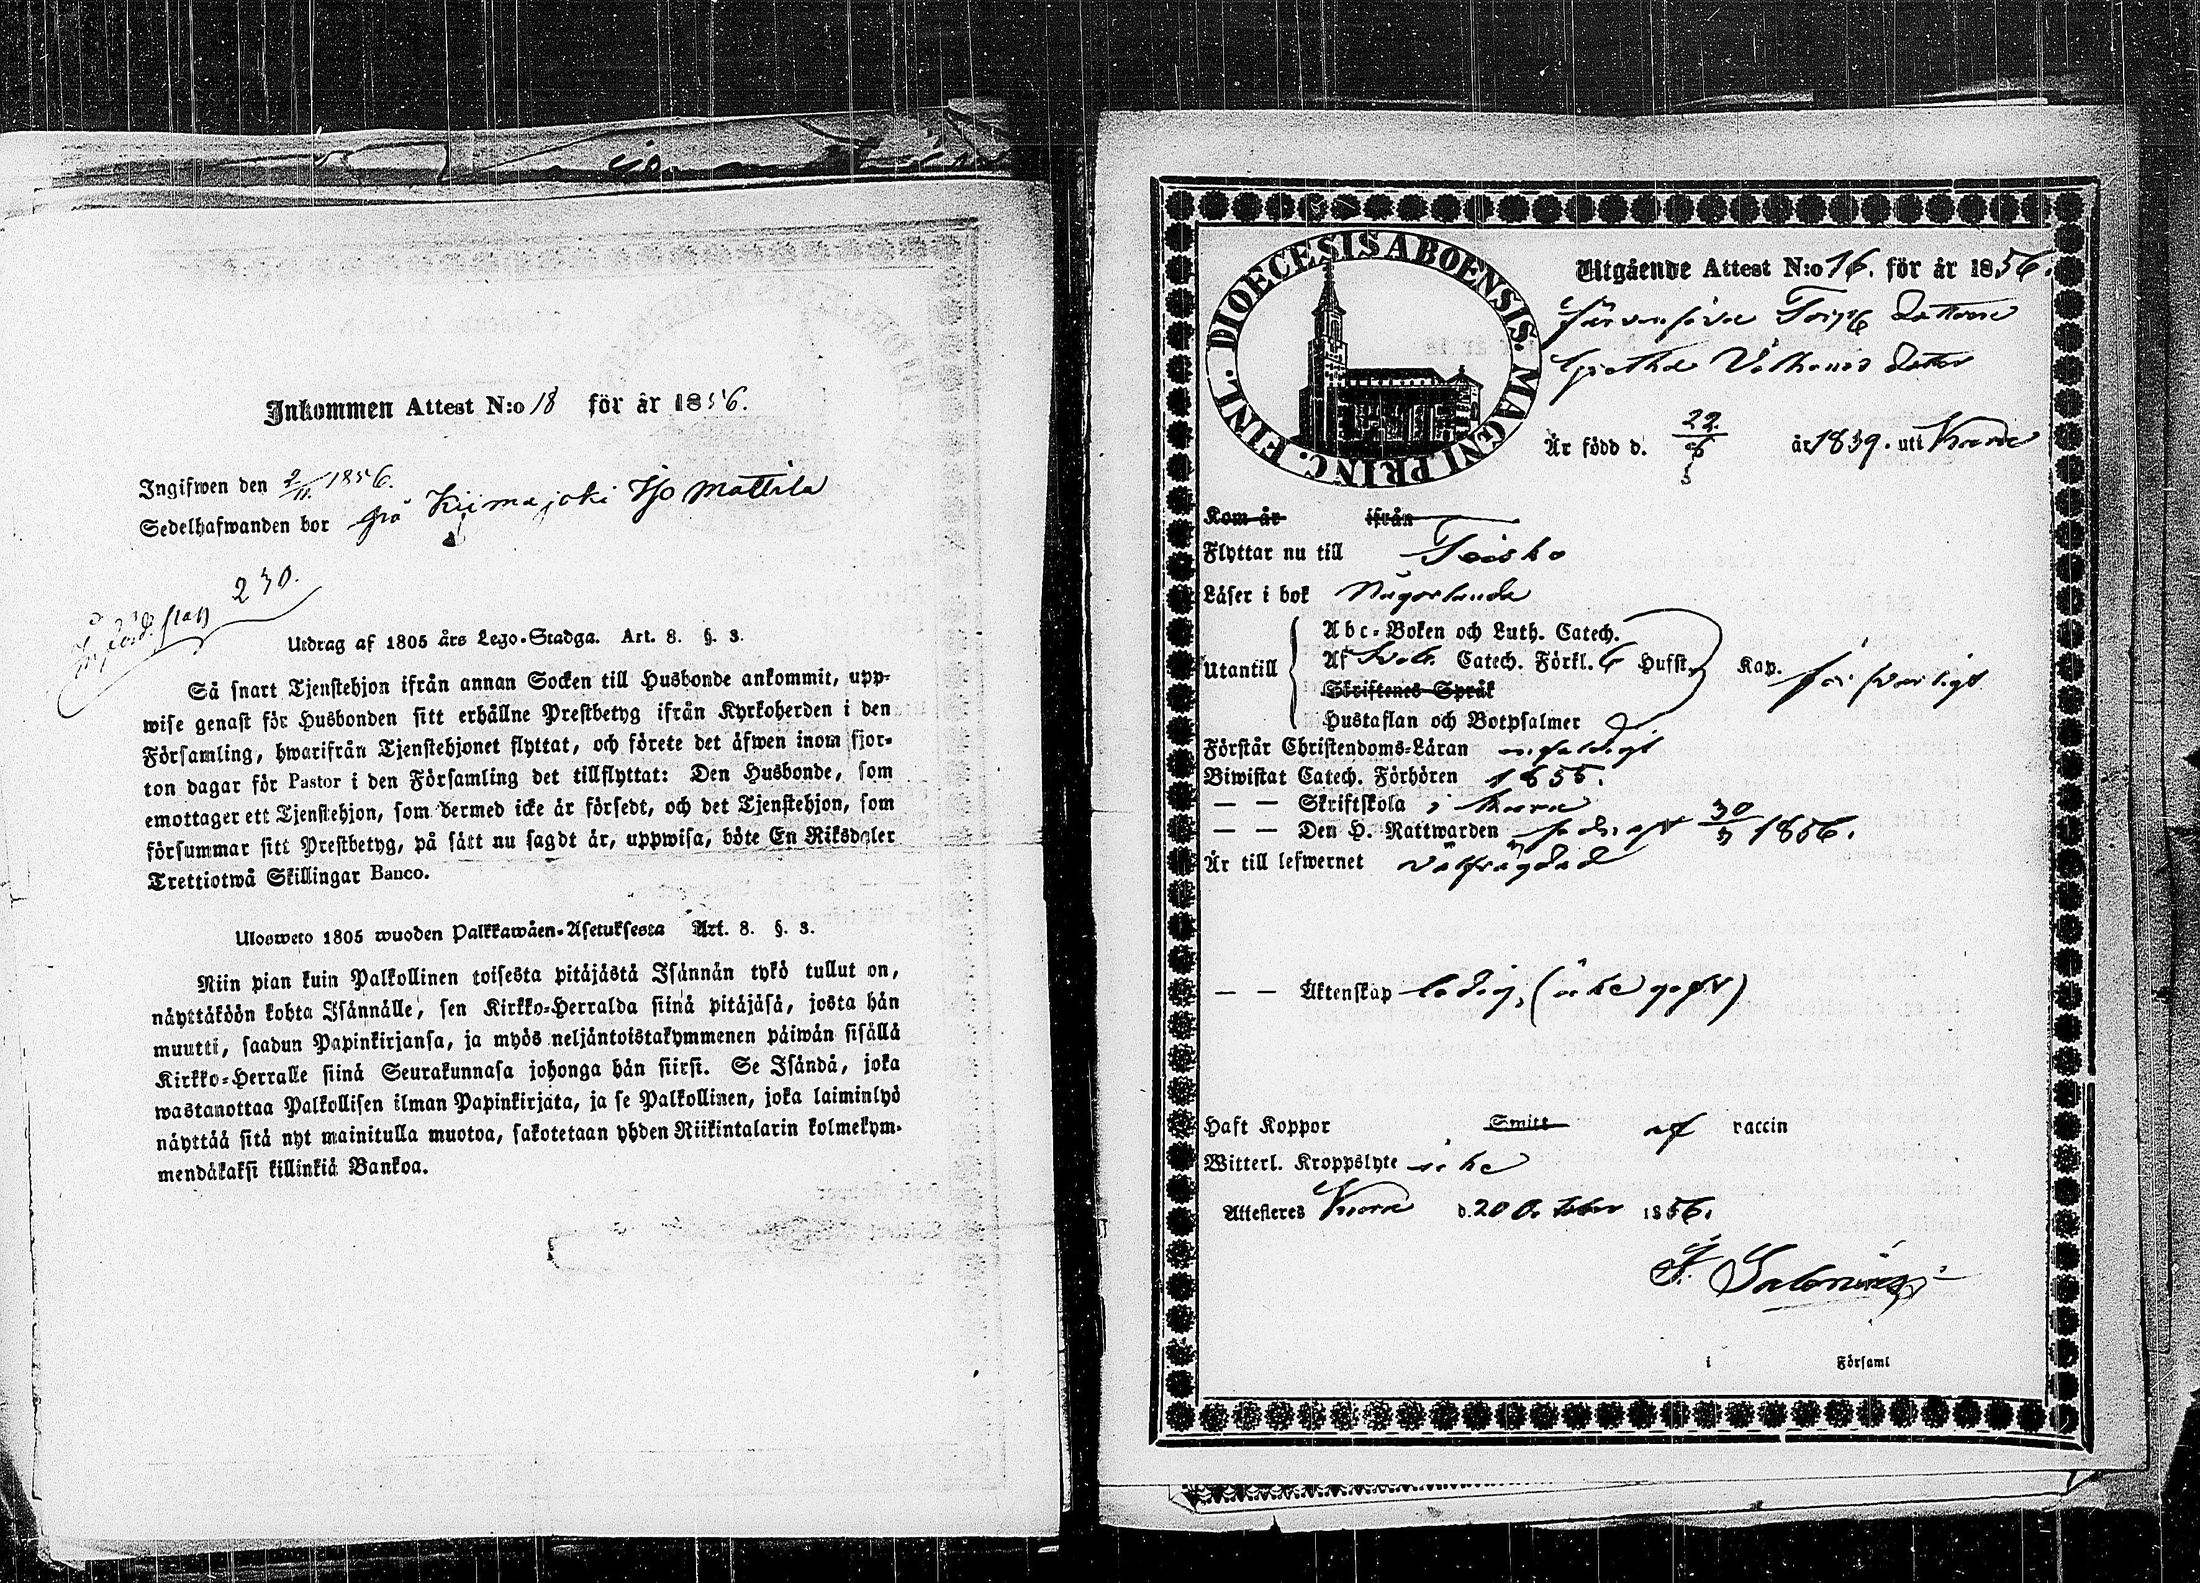 Inkommen Attest N:o 18 för år 1856.
Ingifwen den 2/11 1856.
Sedelhafwanden bor på Kiimajoki Mattila
230.
Utdrag af 1805 års Lego-Stadga. Art. 8. §. 3.
Så snart Tjenstehjon ifrån annan Socken till Husbonde ankommit, upp-
wise genast för Husbonden sitt erhållne Prestbetyg ifrån Kyrkoherden i den
Församling, hwarifrån Tjenstehjonet flyttat, och förete det äfwen inom fjor-
ton dagar för Pastor i den Församling det tillflyttat: Den Husbonde, som
emottager ett Tjenstehjon, som dermed icke är försedt, och det Tjenstehjon, som
försummar sitt Prestbetyg, på sätt nu sagdt är, uppwisa, böte En Riksdaler
Trettiotwå Skillingar Banco.
Ulosweto 1805 wuoden Palkkawäen-Asetuksesta Art. 8. §. 3.
Niin pian kuin Palkollinen toisesta pitäjästä Isännän tykö tullut on,
näyttäköön kohta Isännälle, sen Kirkko-Herralda siinä pitäjäsä, josta hän
muutti, saadun Papinkirjansa, ja myös neljäntoistakymmenen päiwän sisällä
Kirkko-Herralle siinä Seurakunnasa johonga hän siirsi. Se Isändä, joka
wastanottaa Palkollisen ilman Papinkirjata, ja se Palkollinen, joka laiminlyö
näyttää sitä nyt mainitulla muotoa, sakotetaan yhden Riikintalarin kolmekym-
mendäkaksi killinkiä Bankoa.
DIOECESIS ABOENSIS. MAGNI PRINC. FINL.
Utgående Attest N:o 16. för år 1856.
Torp dottren
Gretha dotter
Är född d. 22 år 1839. uti Kuru
Kom år ifrån
Flyttar nu till Teisko
Läser i bok Någorlunda
Abc-Boken och Luth. Catech.
Utantill Af Sveb. Catech. Förkl. 6 Hufst. Kap. försvarligt
Skriftenes Språk
Hustaflan och Botpsalmer
Förstår Christendoms-Läran enfaldigt
Biwistat Catech. Förhören 1855.
— — Skriftskola i Kuru
— — Den H. Nattwarden 30 1856.
Är till lefwernet välfrägdad
— — Äktenskap ledig, (icke gift)
Haft Koppor Smitt af vaccin
Witterl. Kroppslyte icke
Attesteres Kuru d. 20 October 1856.
F. Salonius
i Församl